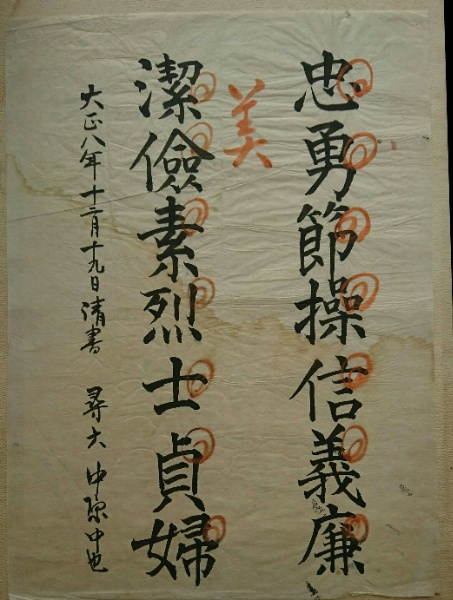 忠勇節操信義廉
潔儉素烈士貞婦
美
大正八年十二月十九日清書 尋六 中原中也